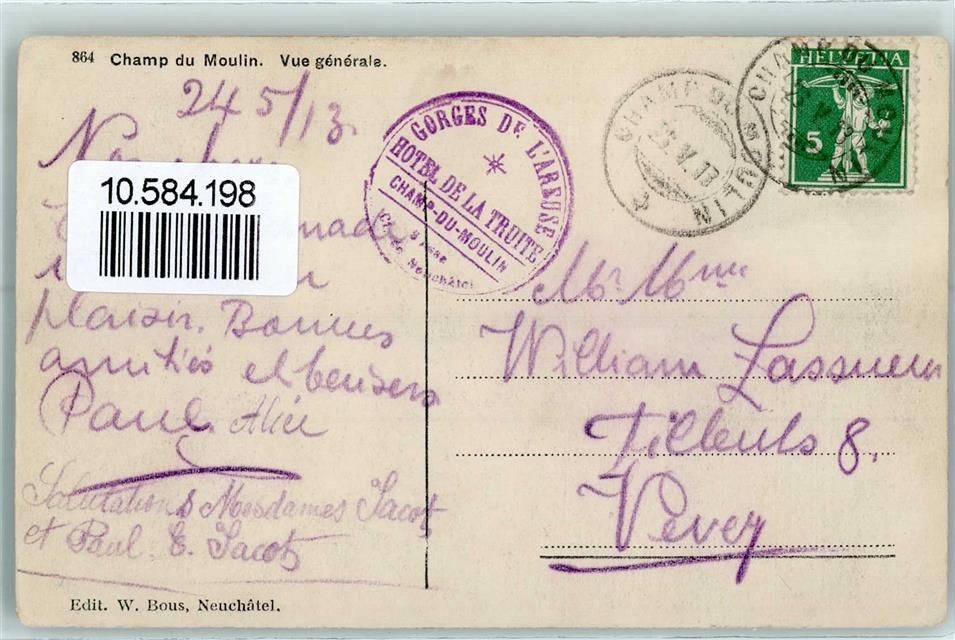 864 Champ du Moulin. Vue générale.
24 5/13.
10.584.198
plaisir. Bonnes
amitiés et baisers
Paul. Alice
Salutations Mesdames Jacot
et Paul. E. Jacot
Edit. W. Bous, Neuchâtel.
GORGES DE L'AREUSE
HOTEL DE LA TRUITE
CHAMP-DU-MOULIN
Neuchâtel
CHAMP DU MOULIN
HELVETIA
5
CHAMP DU MOULIN
Mr. Mme
William Lassueur
Tilleuls 8.
Vevey